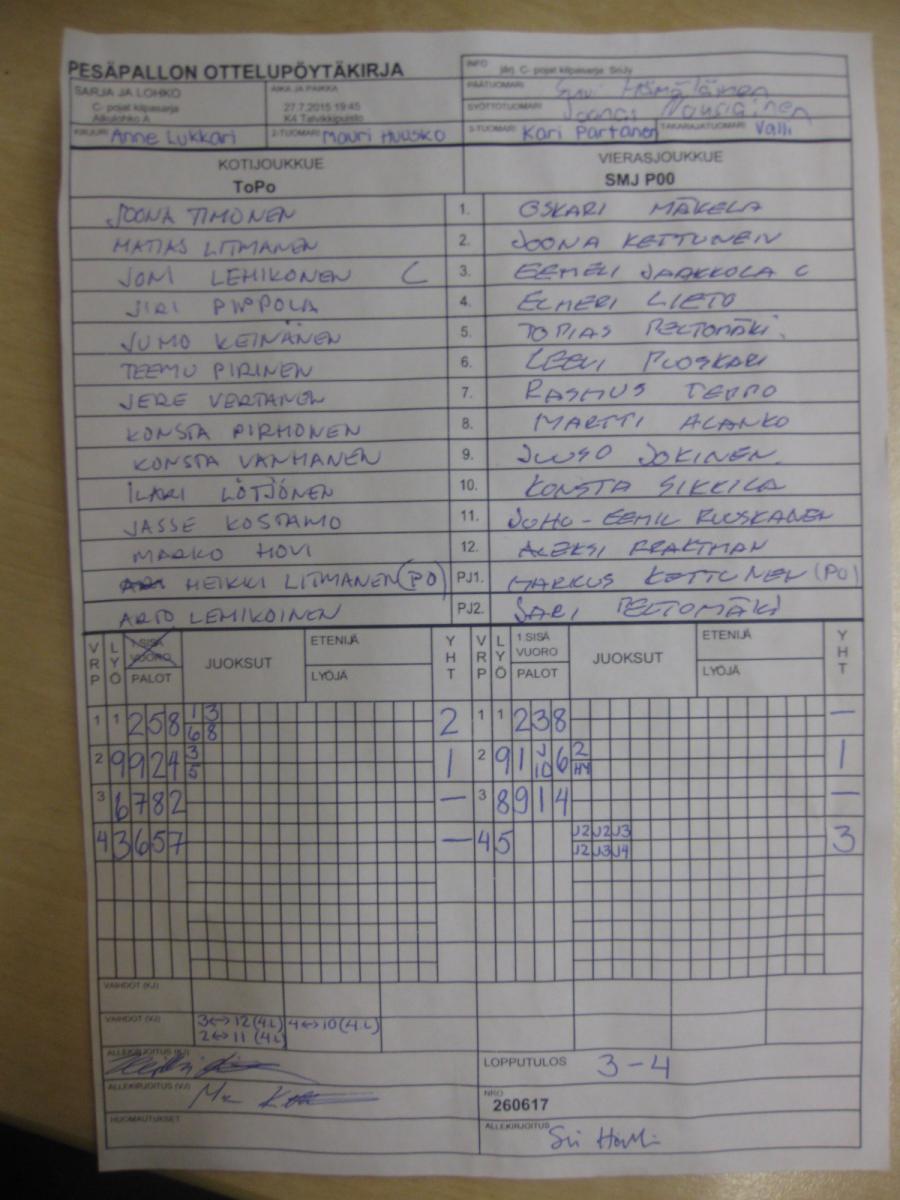 PESÄPALLON OTTELUPÖYTÄKIRJA
INFO järj. C- pojat kilpasarja SuJy
SARJA JA LOHKO
C- pojat kilpasarja
Alkulohko A
AIKA JA PAIKKA
27.7.2015 19:45
K4 Talvikkipuisto
PÄÄTUOMARI Hämäläinen
SYÖTTÖTUOMARI Joonas Nousiainen
KIRJURI Anne Lukkari 2-TUOMARI Mauri Huusko 3-TUOMARI Kari Partanen TAKARAJATUOMARI Valli
KOTIJOUKKUE VIERASJOUKKUE
ToPo SMJ P00
JOONA TIMONEN 1. OSKARI MÄKELÄ
MATIAS LITMANEN 2. JOONA KETTUNEN
JONI LEMIKONEN C 3. EEMELI JAAKKOLA C
JIRI PIPPOLA 4. ELMERI LIETO
JUHO KEINÄNEN 5. TOPIAS PELTOMÄKI
TEEMU PIRINEN 6. LEEVI RUOSKARI
JERE VERTANEN 7. RASMUS TEPPO
KONSTA PIRHONEN 8. MARTTI ALANKO
KONSTA VANHANEN 9. JUUSO JOKINEN
ILARI LÖTJÖNEN 10. KONSTA SIKKILÄ
JASSE KOSTAMO 11. JUHO-EEMIL RUUSKANEN
MARKO HOVI 12. ALEKSI PRAKTMAN
HEIKKI LITMANEN (PO) PJ1. MARKUS KETTUNEN (PO)
ARTO LEMIKOINEN PJ2. SARI PELTOMÄKI
VRP LYÖ 1.SISÄ VUORO PALOT JUOKSUT ETENIJÄ LYÖJÄ YHT VRP LYÖ 1.SISÄ VUORO PALOT JUOKSUT ETENIJÄ LYÖJÄ YHT
1 1 2 5 8 1 3 2 1 1 2 3 8 —
6 8
2 9 9 2 4 3 1 2 9 1 J 6 2 1
5 10 H4
3 6 7 8 2 — 3 8 9 1 4 —
4 3 6 5 7 — 4 5 J2 J2 J3 3
J2 J3 J4
VAIHDOT (KJ)
VAIHDOT (VJ) 3↔12 (4.L) 4↔10 (4.L)
2↔11 (4.L)
ALLEKIRJOITUS (KJ)
LOPPUTULOS 3-4
ALLEKIRJOITUS (VJ)
NRO
260617
HUOMAUTUKSET
ALLEKIRJOITUS